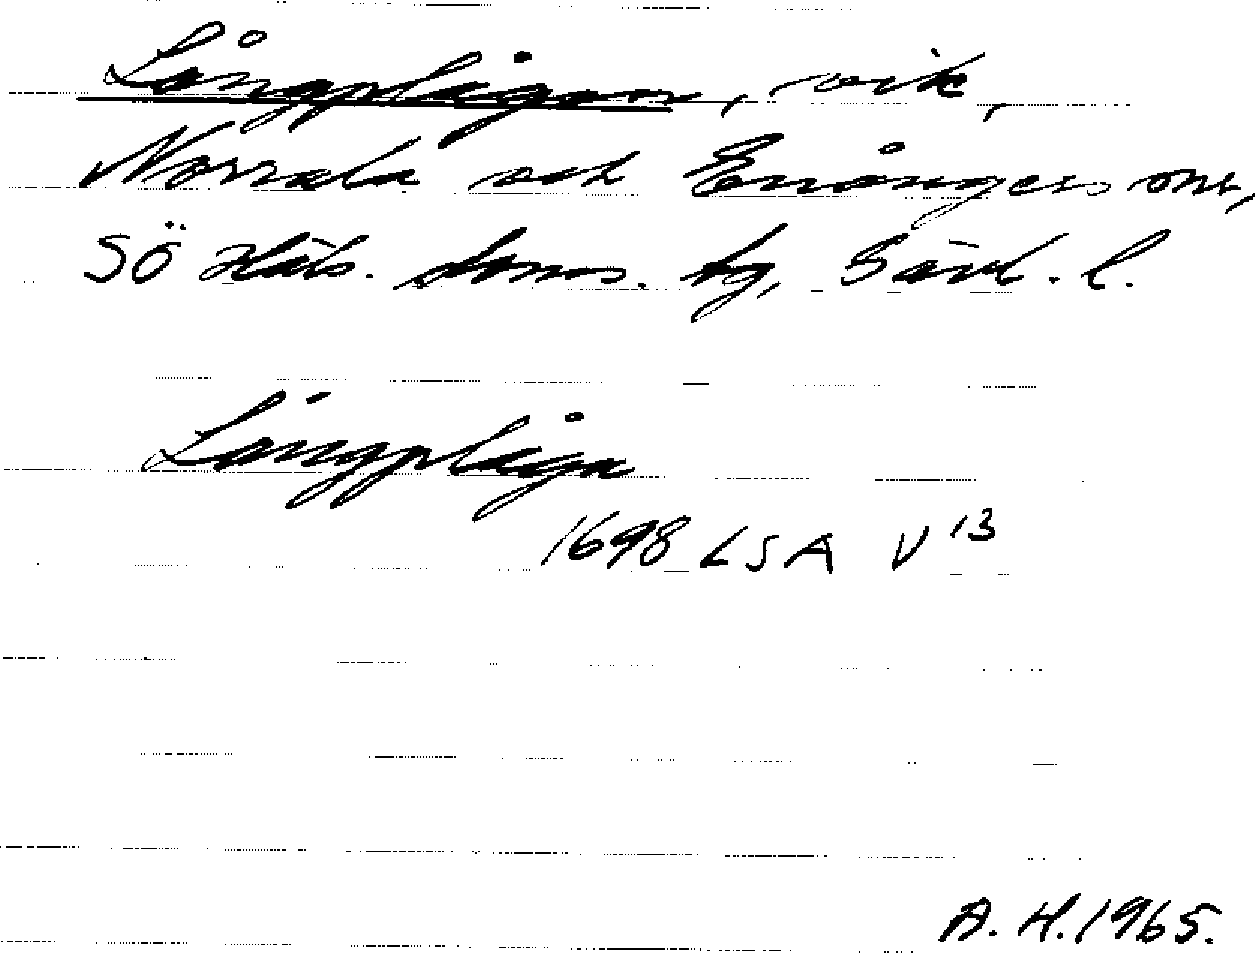 Långplågan, vik,
Norrala och Enångers snr,
SÖ Häls. doms. tg, Gävl. l.
Långplåga
1698 LSA V 13
A. H. 1965.